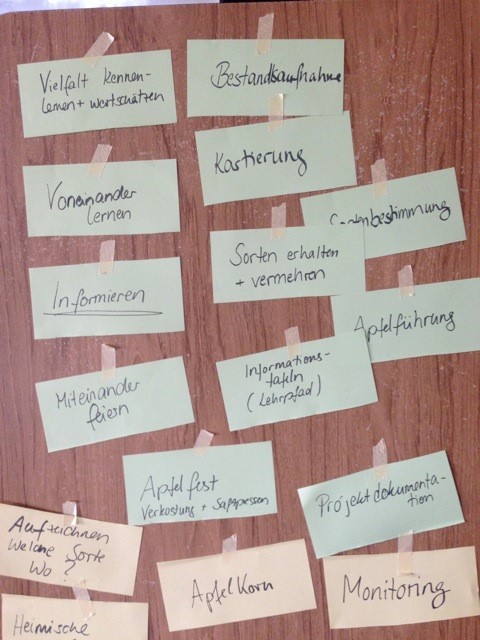 Vielfalt kennen-
lernen + wertschätzen
Bestandsaufnahme
Kartierung
Voneinander
lernen
Sortenbestimmung
Sorten erhalten
+ vermehren
Informieren
Apfelführung
Informations-
tafeln
(Lehrpfad)
Miteinander
feiern
Apfelfest
Verkostung + Saftpressen
Projektdokumenta-
tion
Aufzeichnen
Welche Sorte
Wo?
ApfelKorn
Monitoring
Heimische